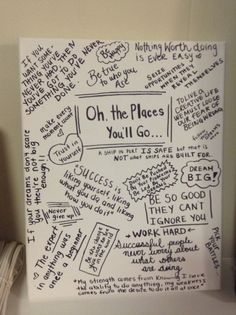 IF YOU
WANT SOME-
THING YOU'VE
NEVER HAD, THEN
YOU'VE GOT TO DO
SOMETHING YOU'VE NEVER
DONE
Be true
to who you
are
Nothing Worth doing
is Ever EASY
SEIZE
OPPORTUNITIES
WHEN THEY
THEMSELVES
make every
moment count
Trust in
yourself
Oh, the Places
You'll Go...
TO LIVE A
CREATIVE LIFE
WE MUST LOSE
OUR FEAR OF
BEING WRONG
A SHIP IN PORT IS SAFE but that is
NOT what ships are BUILT FOR.
If your dreams don't scare
you they're not big
enough!
SUCCESS is
liking yourself, liking
what you do and liking
how you do it
DREAM
BIG!
BE SO GOOD
THEY CAN'T
IGNORE YOU
Never
give up!
The expert
in anything was
once a beginner
WORK HARD
Successful people
never worry about
what others
are doing
PICK
YOUR
BATTLES
"My strength comes from knowing I have
the ability to do anything, my weakness
comes from the desire to do it all at once"